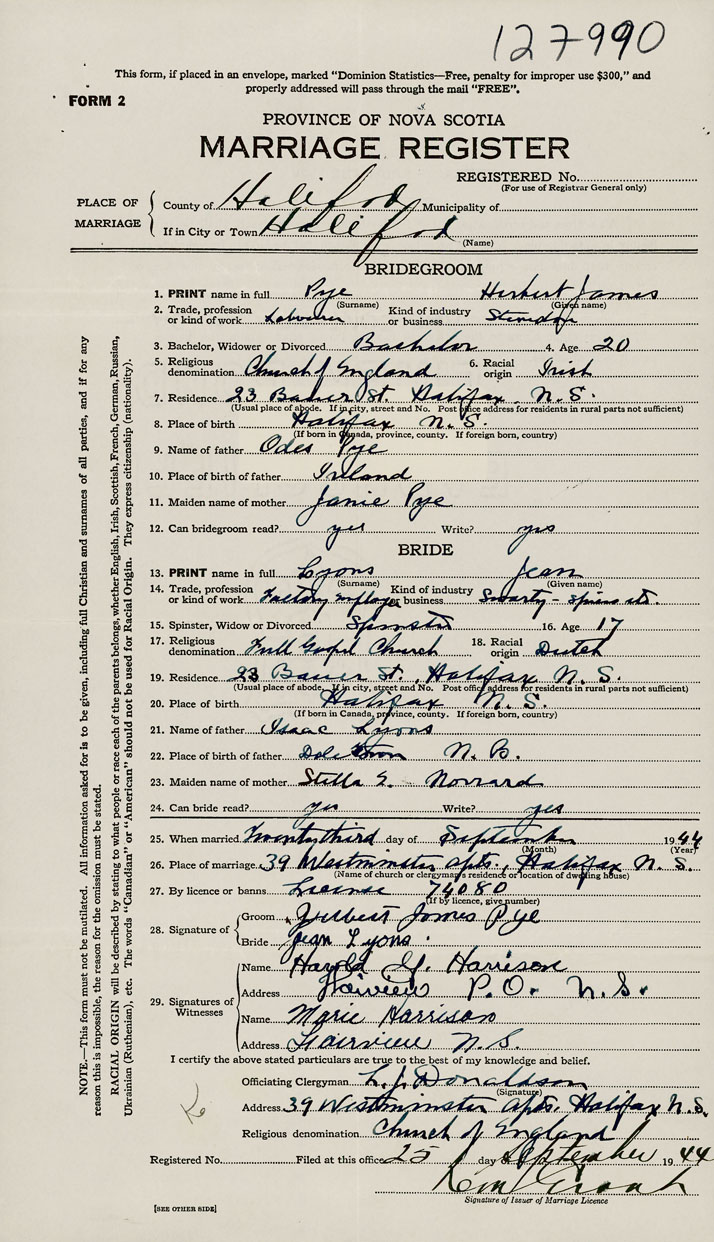 127990
This form, if placed in an envelope, marked "Dominion Statistics—Free, penalty for improper use $300," and
properly addressed will pass through the mail "FREE".
FORM 2
PROVINCE OF NOVA SCOTIA
MARRIAGE REGISTER
REGISTERED No.
(For use of Registrar General only)
PLACE OF MARRIAGE
County of Halifax Municipality of
If in City or Town Halifax
(Name)
BRIDEGROOM
1. PRINT name in full Pye Herbert James
(Surname) (Given name)
2. Trade, profession or kind of work Labourer Kind of industry or business
3. Bachelor, Widower or Divorced Bachelor 4. Age 20
5. Religious denomination Church of England 6. Racial origin Irish
7. Residence 23 Bauer St. Halifax, N.S.
(Usual place of abode. If in city, street and No. Post office address for residents in rural parts not sufficient)
8. Place of birth Halifax N.S.
(If born in Canada, province, county. If foreign born, country)
9. Name of father Odes Pye
10. Place of birth of father Ireland
11. Maiden name of mother Janie Pye
12. Can bridegroom read? yes Write? yes
BRIDE
13. PRINT name in full Lyons Jean
(Surname) (Given name)
14. Trade, profession or kind of work Factory employee Kind of industry or business
15. Spinster, Widow or Divorced Spinster 16. Age 17
17. Religious denomination Full Gospel Church 18. Racial origin Dutch
19. Residence 23 Bauer St., Halifax N.S.
(Usual place of abode. If in city, street and No. Post office address for residents in rural parts not sufficient)
20. Place of birth Halifax N.S.
(If born in Canada, province, county. If foreign born, country)
21. Name of father Isaac Lyons
22. Place of birth of father N.B.
23. Maiden name of mother Stella
24. Can bride read? yes Write? yes
25. When married Twenty third day of September 1944
(Month) (Year)
26. Place of marriage 39 Westminster Apts., Halifax N.S.
(Name of church or clergyman's residence or location of dwelling house)
27. By licence or banns License 74080
(If by licence, give number)
28. Signature of
Groom Herbert James Pye
Bride Jean Lyons
29. Signatures of Witnesses
Name Harold Harrison
Address Fairview P.O. N.S.
Name Marie Harrison
Address Fairview N.S.
I certify the above stated particulars are true to the best of my knowledge and belief.
Officiating Clergyman L. J. Donaldson
(Signature)
Address 39 Westminster Apts. Halifax N.S.
Religious denomination Church of England
Registered No. Filed at this office 25 day September 1944
Signature of Issuer of Marriage Licence
[SEE OTHER SIDE]
NOTE.—This form must not be mutilated. All information asked for is to be given, including full Christian and surnames of all parties, and if for any
reason this is impossible, the reason for the omission must be stated.
RACIAL ORIGIN will be described by stating to what people or race each of the parents belongs, whether English, Irish, Scottish, French, German, Russian,
Ukrainian (Ruthenian), etc. The words "Canadian" or "American" should not be used for Racial Origin. They express citizenship (nationality).